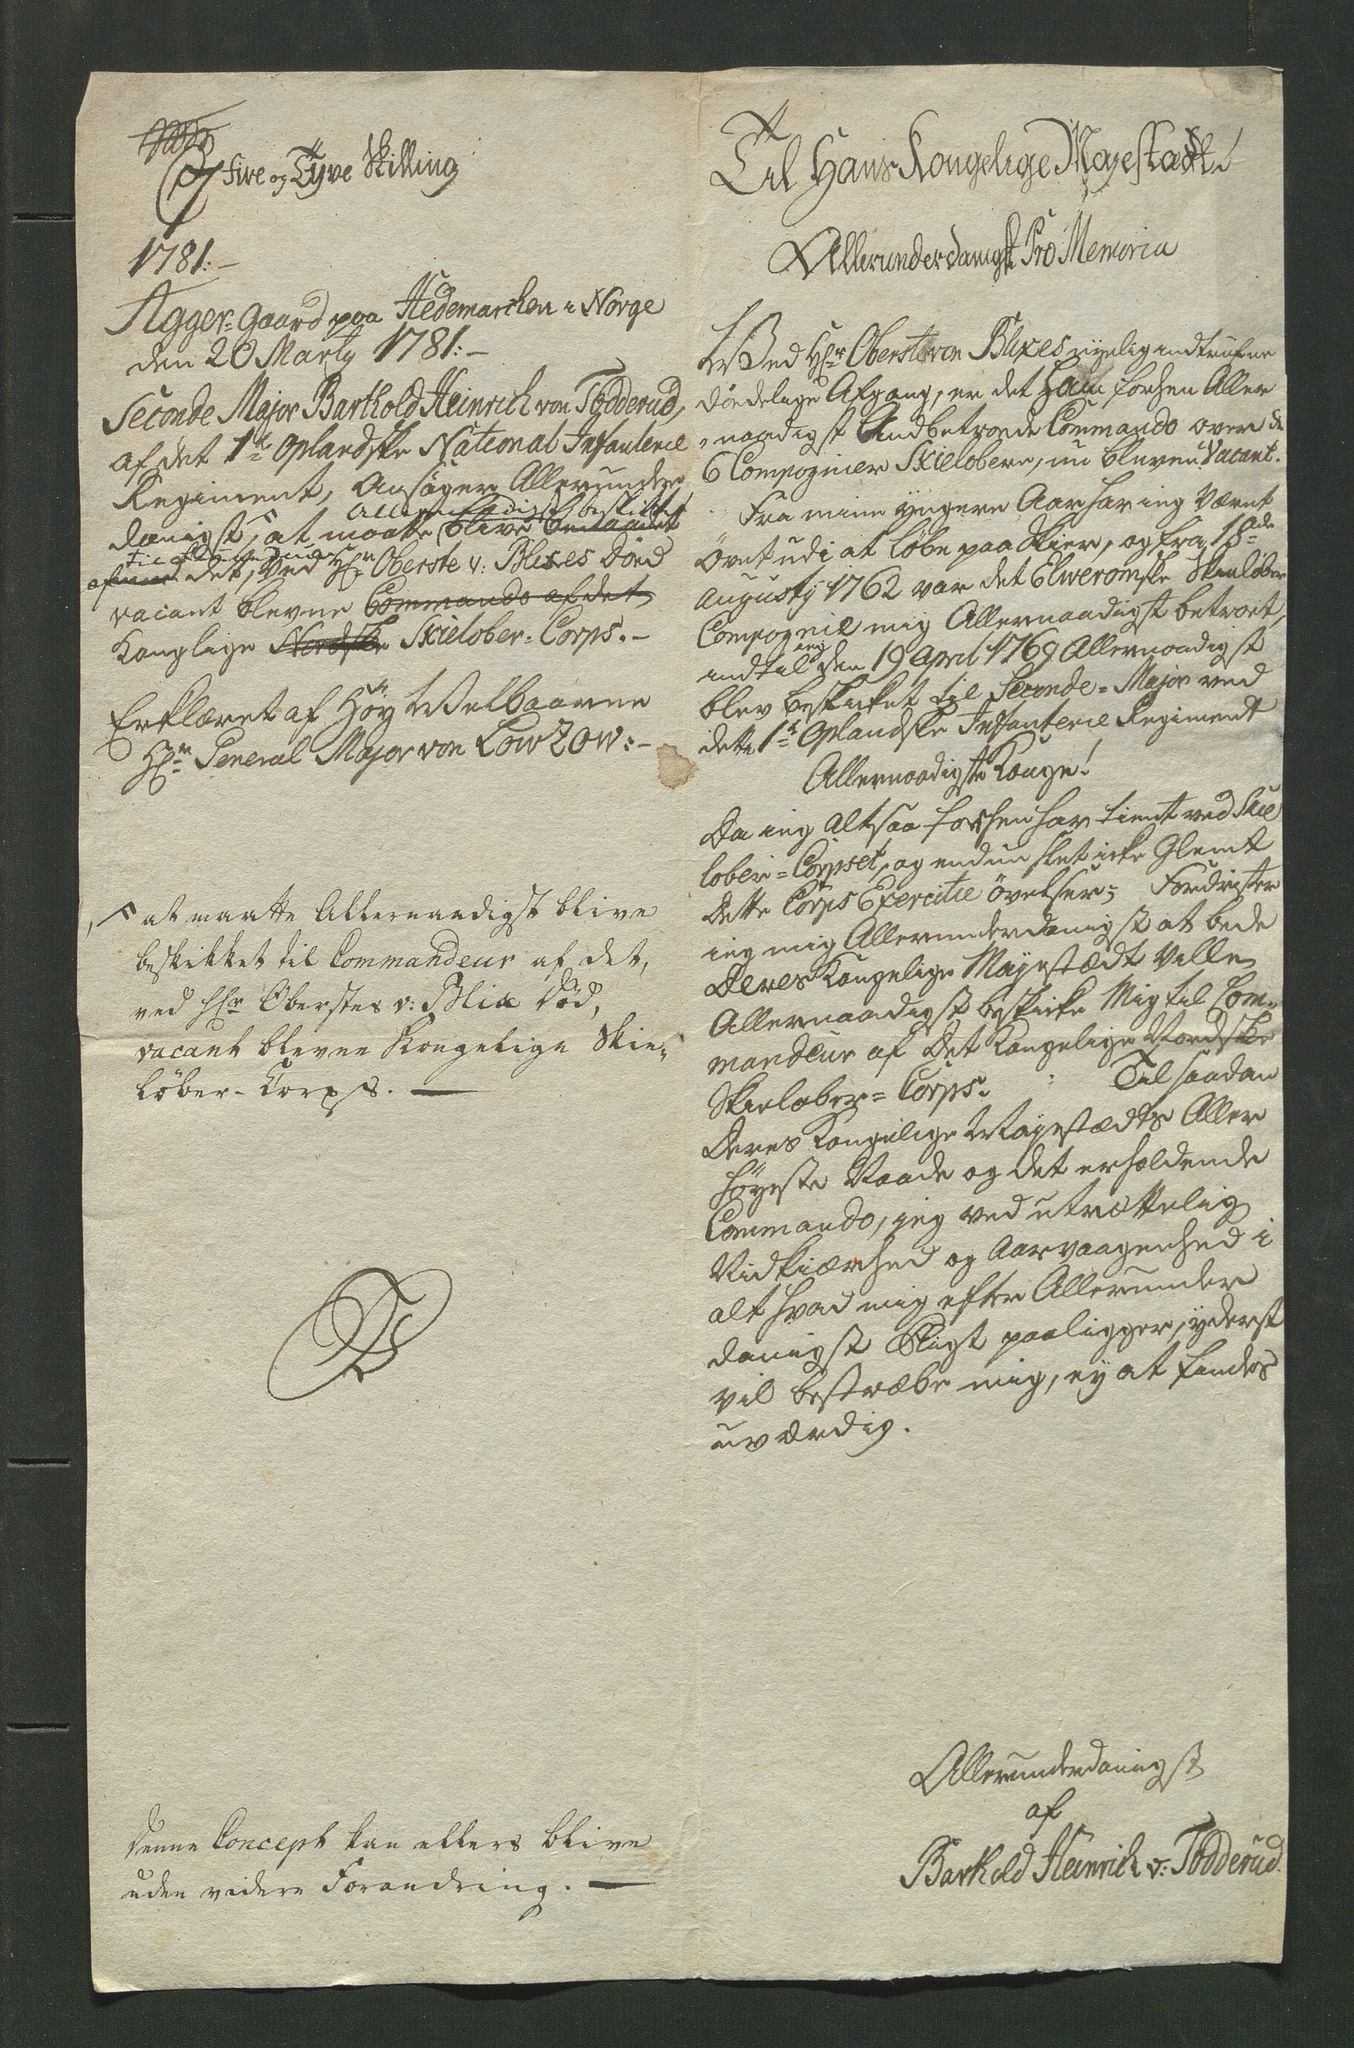 Fire og Tyve Skilling
1781:-
Agger-Gaard paa Hedemarchen i Norge
den 20 Marty 1781:-
Seconde Major Barthold Heinrich von Tødderud,
af det 1te Oplandske National Infanterie
Regiment, Ansøger Allerunder
danigst, at maatte blive
Allernaadigst beskikket
det, ved Hr Oberste v: Blixes Død
vacant blevne Commando af det
Konglige Nordske Skieløber-Corps.-
Erklæret af Høy Welbaarne
Hr General Major von Lowzow:-
at maatte Allernaadigst blive
beskikket til Commandeur af det,
ved Hr Oberstes v: Blix Død,
vacant blevne Kongelige Skie-
løber-Corps.
Denne Concept kan ellers blive
uden videre Forandring.
Til Hans Kongelige Mayestædt!
Allerunderdanigst Pro Memoria
Wed Hr Oberst von Blixes nyelig indtrufne
dødelige Afgang, er det ham forhen Aller
naadigst Anbetroede Commando over de
6 Compagnier Skieløbere, nu bleven Vacant.
Fra mine yngere Aar har ieg Været
Øvet udi at løbe paa Skier, og fra 18de
Augusty 1762 var det Elveromske Skieløber
Compagnie mig Allernaadigst betroet,
indtil ieg den 19 April 1769 Allernaadigst
blev beskicket til Seconde-Major ved
dette 1te Oplandske Infanterie Regiment
Allernaadigste Konge!
Da ieg Altsaa forhen har tient ved Skie
løber-Corpset, og endnu slet icke Glemt
dette Corps Exercitie øvelser; Fordrister
ieg mig Allerunderdanigst at bede
Deres Kongelige Mayestædt Ville
Allernaadigst beskicke Mig til Com-
mandeur af Det Kongelige Nordske
Skieløber-Corps. Til saadan
Deres Kongelige Mayestædts Aller
høyeste Naade og det erholdende
Commando, jeg ved utrættelig
Nidkiærhed og Aarvaagenhed i
alt hvad mig efter Allerunder
danigst Pligt paaligger, yderst
vil bestræbe mig, ey at findes
uværdig.
Allerunderdanigst
af
Barthold Heinrich v: Tødderud.